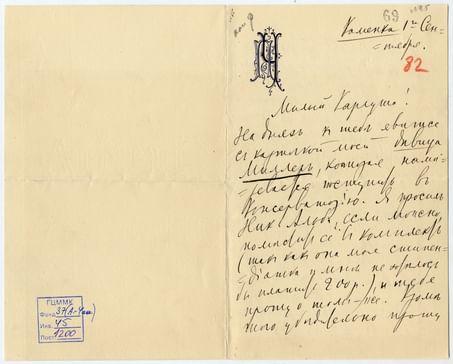 69
1885
Каменка 1го Сен-
тября.
82
ПЧ
Милый Карлуша!
На днях к тебе явится
с карточкой моей девица
Миллер, которая наме-
ревается поступить в
Консерваторию. Я просил
Ник. Альб., если можно
поместить её в комплект
(так как она моя стипен-
диатка и мне не хотелось
бы платить 200 р.), и тебя
прошу о том же. Кроме
того убедительно прошу
ГЦММК
Фонд 37 (А-4)
Инв. 45
Пост. 1200